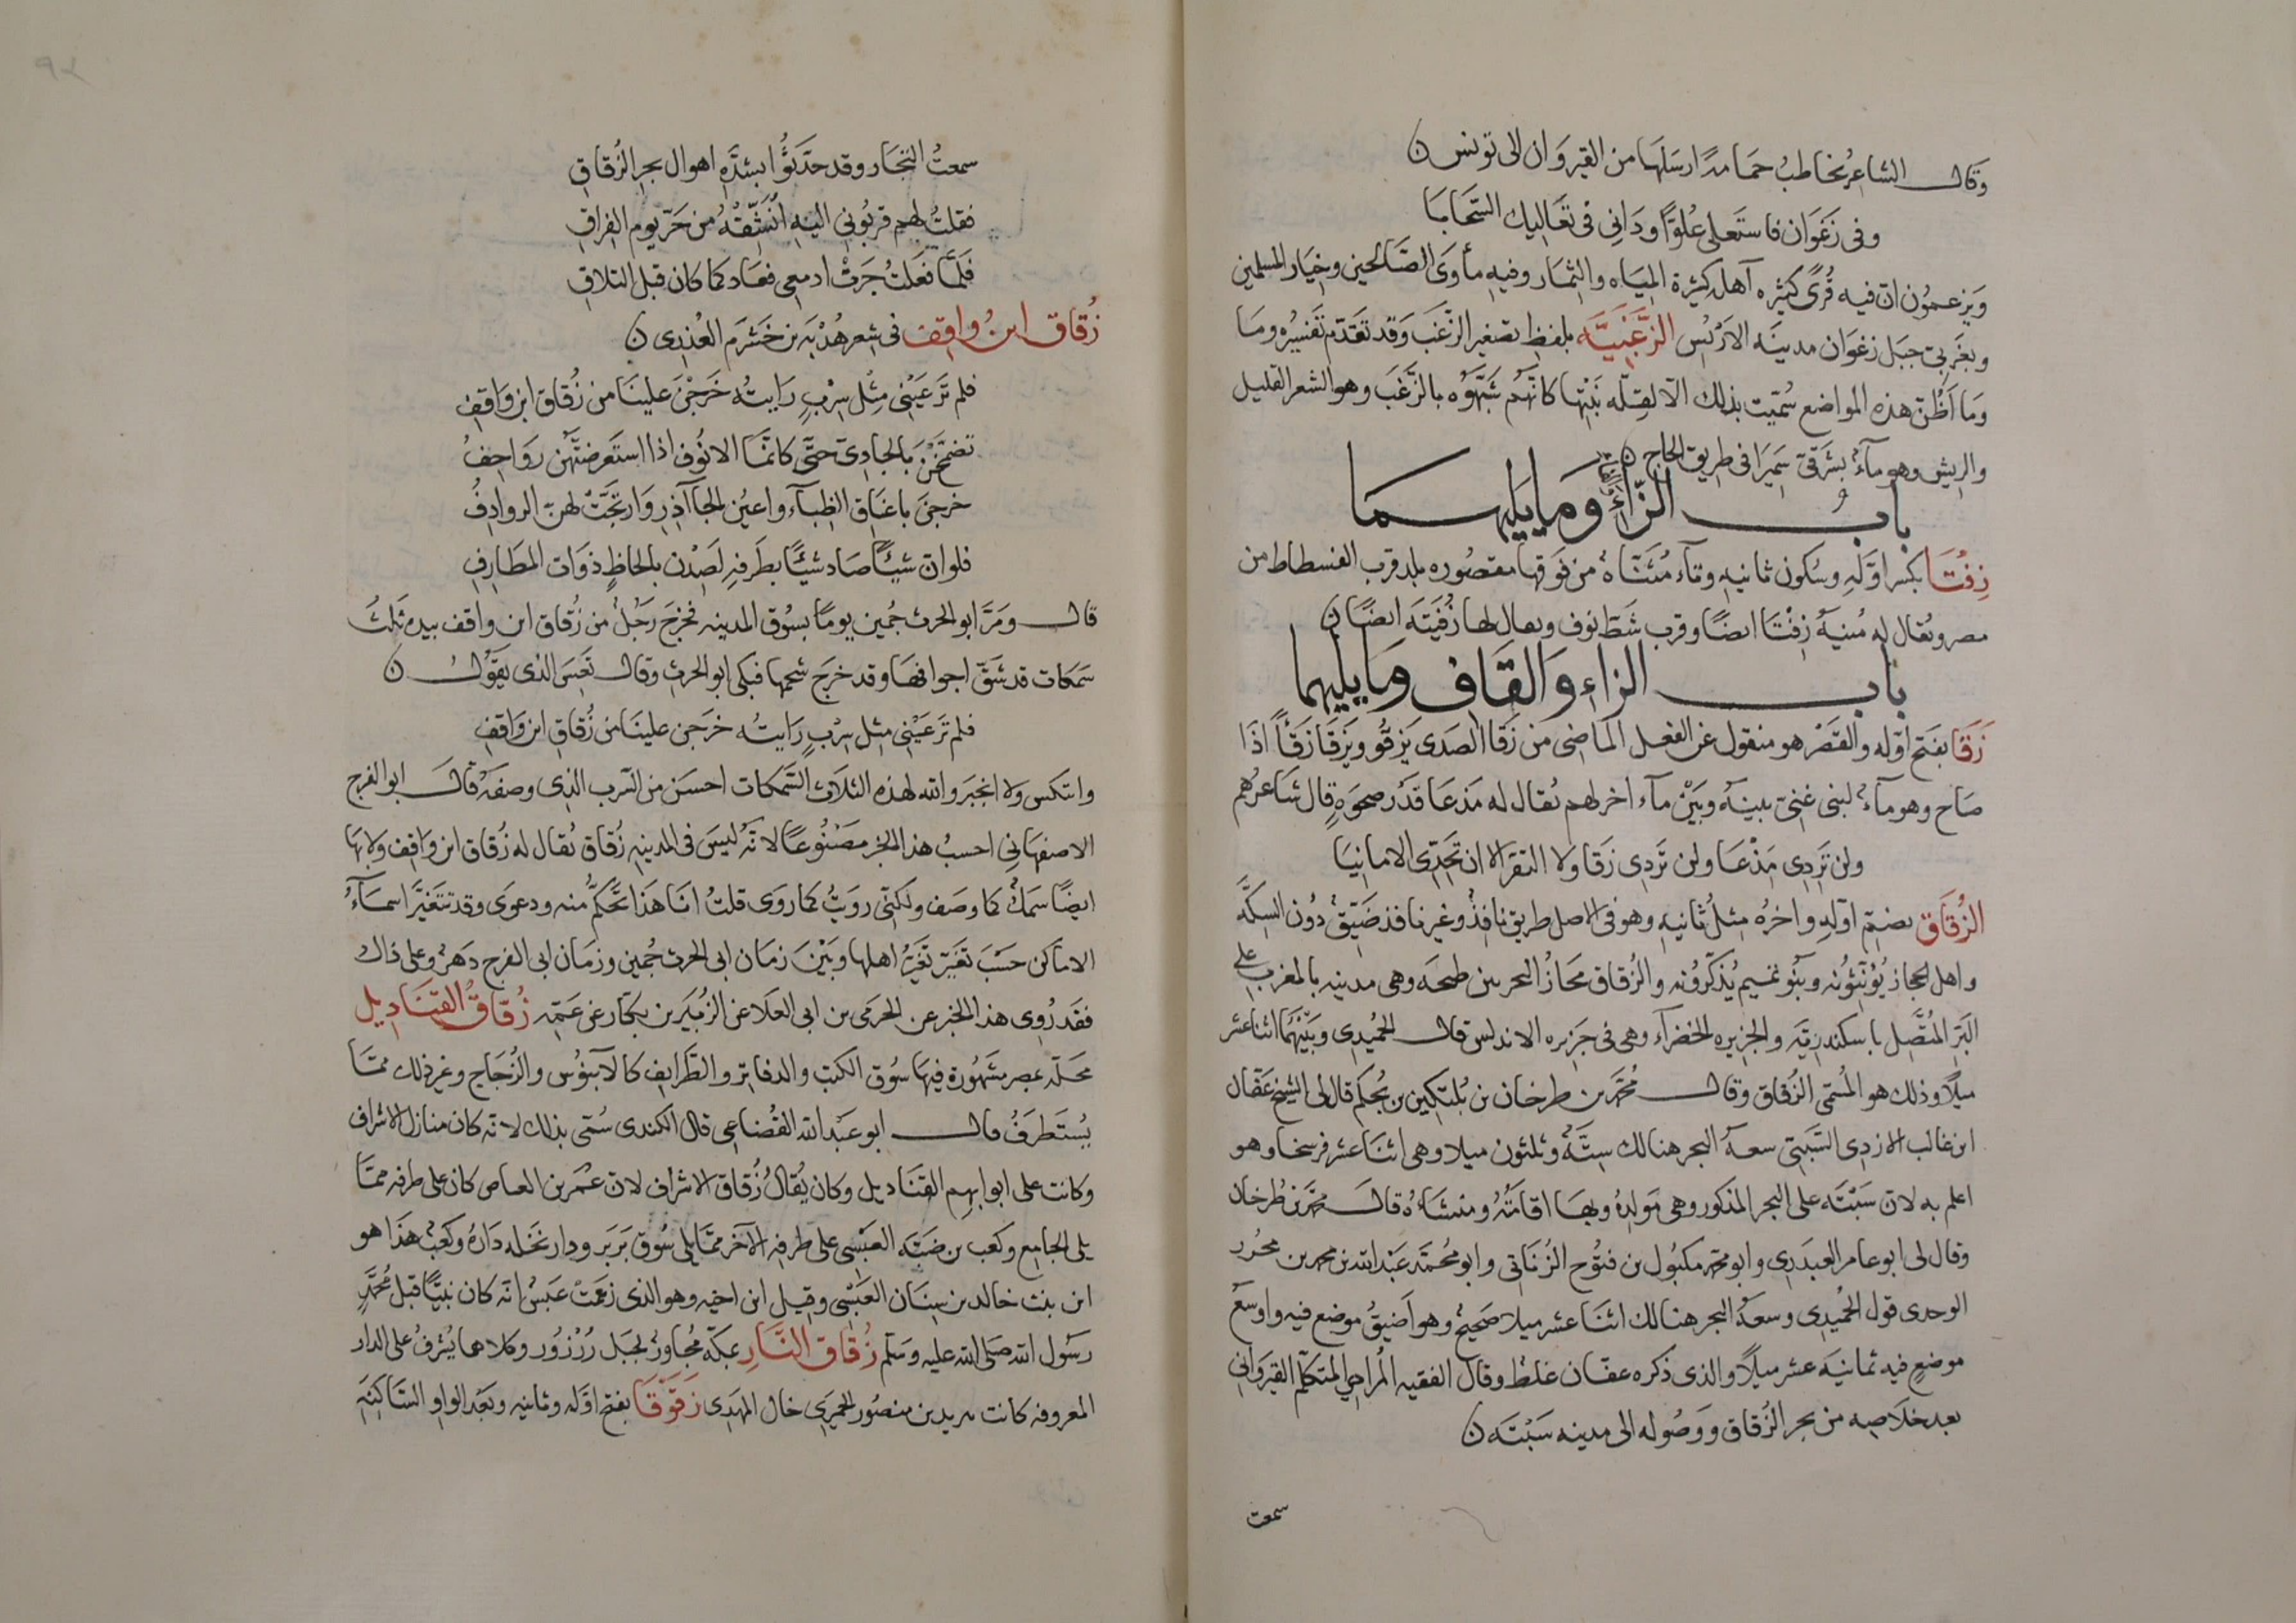 وقال الشاعر يخاطب حمامة ارسلها من القيروان الى تونس ن
وفي زغوان فاستعلى علوًا وداني في تعاليك السحابا
ويزعمون ان فيه قُرًى كثيره آهله كثيرة المياه والثمار وفيه مأوى الصّالحين وخيار المسلمين
وبغربي جبل زغوان مدينه الاربُس الزُّغَيْبيَّه بلفظ تصغير الزغب وقد تقدّم تفسيره وما
وما اظنّ هذه المواضع سُمّيت بذلك الّا لقلّه نبتها كانّهم شبّهوه بالزَّغَب وهو الشعر القليل
والريش وهو مآءٌ بشرقيّ سَمِيرَا في طريق الحاج ن
باب الزاء وما يليهما
زِفْتَا بكسر اوّله وسكون ثانيه وتآء مُثَنّاة من فوقها مقصوره بلد قرب الفسطاط من
مصر ويُقال له مُنيه زِفْتَا ايضًا وقرب شَطّنوف ويقال لها زُفَيْتَه ايضًا ن
باب الزاء والقاف وما يليهما
زَقَا بفتح اوّله والقصر هو منقول عن الفعل الماضي من زقا الصدى يزقو ويزقا زَقْاً اذا
صاح وهو مآءٌ لبنى غنيّ بينه وبين مآء اخر لهم يُقال له مذعا قَدْر صحوه قال شاعرهم
ولن تردى مذعا ولن تردى زقا ولا النقر الا ان تجدّى الامانيا
الزُّقاق بضمّ اوّله واخره مثل ثانيه وهو في الاصل طريق نافذٌ وغير نافذ ضيّقٌ دون السكّه
واهل الحجاز يؤنّثونه وبنو تميم يُذكّرونه والزُقاق مجازُ البحر بين طنجه وهي مدينه بالمغرب على
البَرّ المُتّصل باسكندريّه والجزيره الخضرآء وهي في جزيره الاندلس قال الحُميدي وبينهما اثنا عشر
ميلاً وذلك هو المُسمّى الزُقاق وقال محمّد بن طرخان بن بُلتكين بن بُجكم قال لى الشيخ عفّان
ابن غالب الازدي السّبتيّ سعهُ البحر هنالك ستّهٌ وثلثون ميلا وهي اثنا عشر فرسخا وهو
اعلم به لان سَبْتَه على البحر المذكور وهي مولده وبها اقامتُهُ ومنشاهُ قال محمّد بن طرخان
وقال لى ابو عامر العبدرى وابو محمّد مكبُول بن فتُوح الزُناتي وابو محمّد عبد الله بن محمد بن محرر
الوحدى قول الحُميدي وسعهُ البحر هنالك اثنا عشر ميلا صحيحٌ وهو اضيقُ موضع فيه واوسعُ
موضع فيه ثمانيه عشر ميلاً والذي ذكره عفّان غلطٌ وقال الفقيه المُرادِي المتكلّم القيرواني
بعد خلاصه من بحر الزُقاق ووصُوله الى مدينه سَبْتَه ن
سمعت
سمعتُ التجّار وقد حدّثُوا بشدّه اهوال بحر الزُقاق
فقلتُ لهم قربُوني اليه اُنَشّفْهُ من حَرّ يوم الفراق
فلمّا فعلتُ جَرَتْ ادمعى فعاد كما كان قبل التلاق
زُقاق ابن واقف في شعر هُدْبَه بن خَشرَم العُذرى ن
فلم تر عَيْني مثل سِرْبٍ رايتُه خرجْنَ علينا من زُقاق ابن واقف
تضمّخْنَ بالجاديّ حتّى كانّما الانُوف اذا استعرضتَهُن رواعفُ
خرجنَ باعناق الظبآء واعيُن الجآآذر وارتجّتْ لهنّ الروادفُ
فلو انّ شيئًا صاد شيئًا بطرفه لصِدْن بالحاظٍ ذوات المطارف
قال ومَرَّ ابو الحرث جُمين يومًا بسُوق المدينه فخرج رجُلٌ من زُقاق ابن واقف بيده ثَلثُ
سمكات قد شقّ اجوافها وقد خرج شحمها فبكى ابو الحرث وقال تَعِسَ الذي يقولُ ن
فلم تر عَيْني مثل سِرْبٍ رايتُه خرجن علينا من زُقاق ابن واقف
وانتكس ولا انجبر والله لهذه الثلاث السّمكات احسن من السّرب الذي وصفَه قال ابو الفرج
الاصفهاني احسبُ هذا الخبر مصنُوعًا لانّه ليس في المدينه زُقاق يُقال له زُقاق ابن واقف ولا بها
ايضًا سمكٌ كما وصف ولكنّى رويتُ كما روى قلتُ انا هذا تحكّمٌ منه ودعوى وقد تتغيّر اسمآءُ
الاماكن حسَبَ تغيّر اهلها وبين زمان ابي الحرث جُمين وزمان ابي الفرج دهرٌ وعلى ذاك
فقد رُوى هذا الخبر عن الحرمى بن ابي العلا عن الزُبير بن بكّار عن عَمّه زُقاقُ القناديل
محلّه بمصر مشهُورة فيها سُوق الكتب والدفاتر والظّرايف كالآبنُوس والزُجاج وغير ذلك ممّا
يُستطرَفُ قال ابو عبد الله القُضاعي قال الكندي سُمّى بذلك لانّه كان منازل الاشراف
وكانت على ابوابهم القناديل وكان يُقالُ زُقاق الاشراف لان عمر بن العاص كان على طرفه ممّا
يلى الجامع وكعب بن ضبّه العبسى على طرفه الآخر ممّا يلى سُوق بَربر ودار نخله دارُهُ وكعبٌ هذا هو
ابن بنت خالد بن سِنان العبسى وقيل ابن اخيه وهو الذي زعَمَتْ عبسٌ انّه كان نبيّا قبل محمّد
رسُول الله صلى الله عليه وسلم زُقاق النّار بمكّه مُجاورٌ لجبل زُرْزُور وكلاهما يُشرفُ على الدار
المعروفه كانت بيزيد بن منصُور الحِميَري خال المهَدى زَقَوْقَا بفتح اوّله وثانيه وبعد الواو السّاكنه